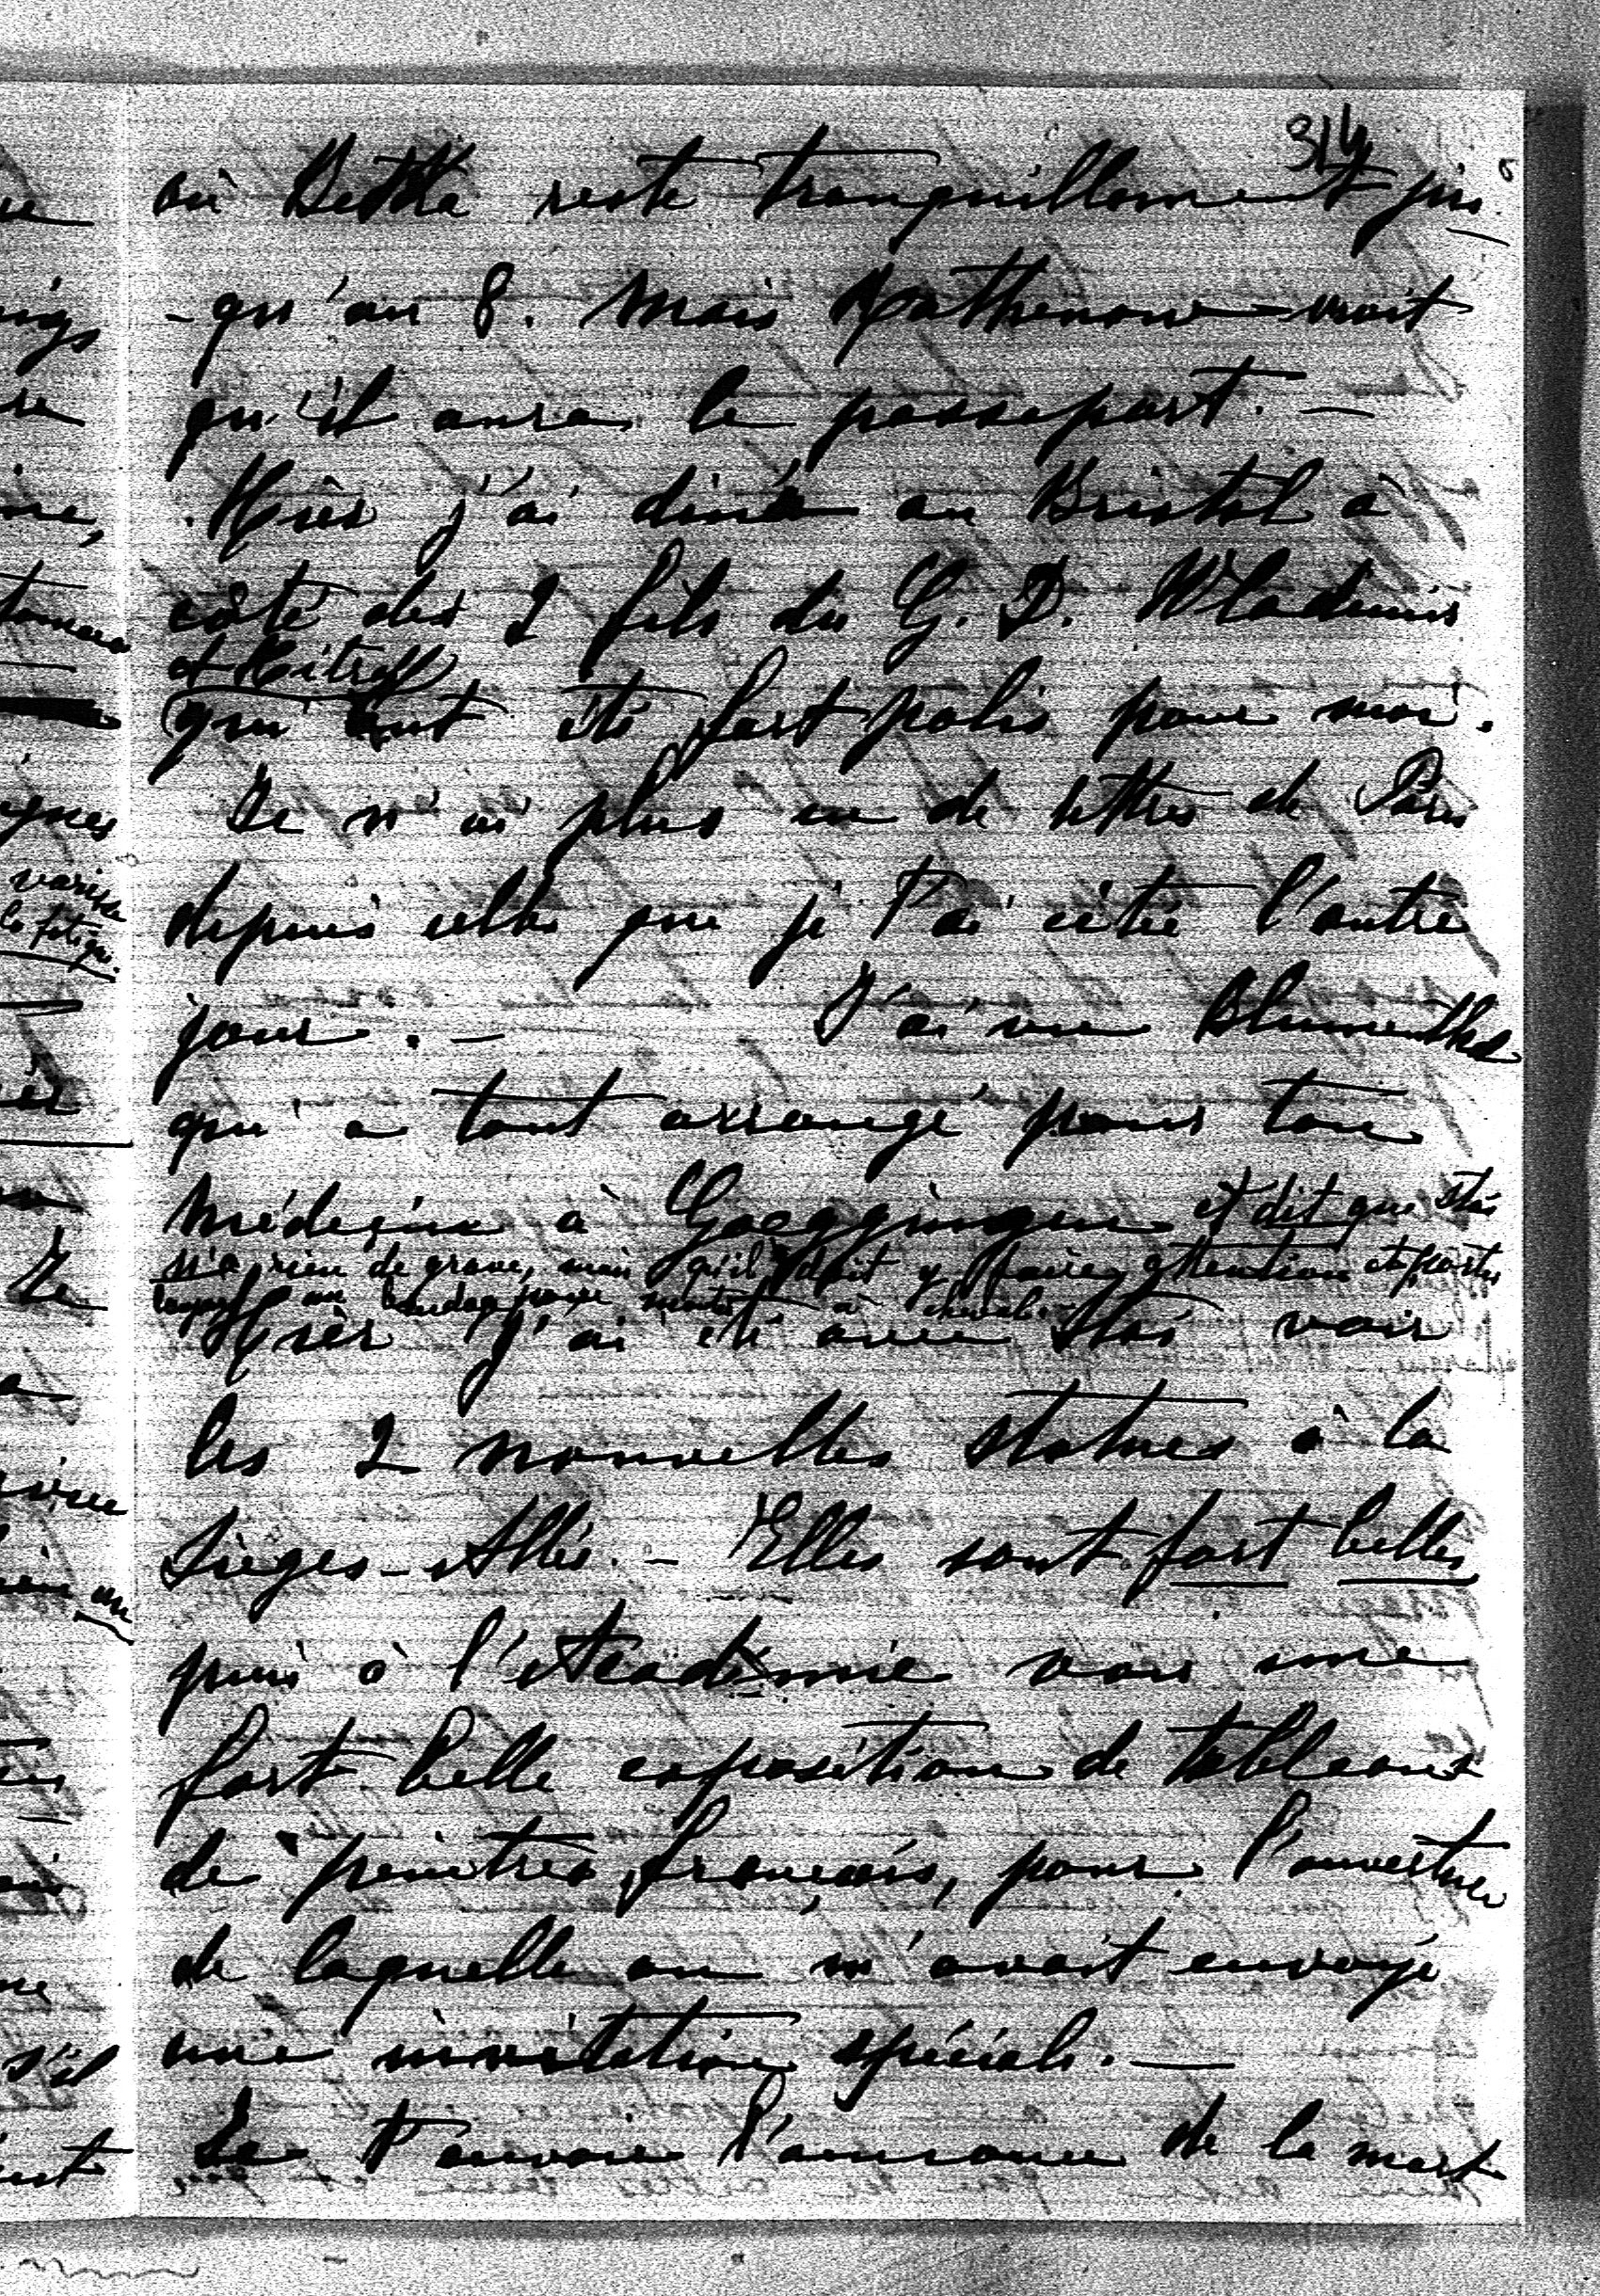 314
6
où Betka reste tranquillement jus-
-qu'au 8. Mais Rathenow croit
qu'il aura le passeport. —
Hier j'ai diné au Bristol à
côté des 2 fils du G. D. Wladimir
et
qui ont été fort polis pour moi.
Je n'ai plus eu de lettres de Paris
depuis celle que je t'ai citée l'autre
jour. — J'ai vu Blumenthal
qui a tout arrangé pour ton
médecin à Goeggingen et dit que Stás
n'a rien de grave, mais qu'il doit y faire attention et porter
toujours un bandage pour monter à cheval.
Hier j'ai été avec Stás voir
les 2 nouvelles statues à la
Sieges-Allée. — Elles sont fort belles
puis à l'Académie voir une
fort belle exposition de tableaux
de peintres français, pour l'ouverture
de laquelle on m'avait envoyé
une invitation spéciale. —
Je t'envoie l'annonce de la mort